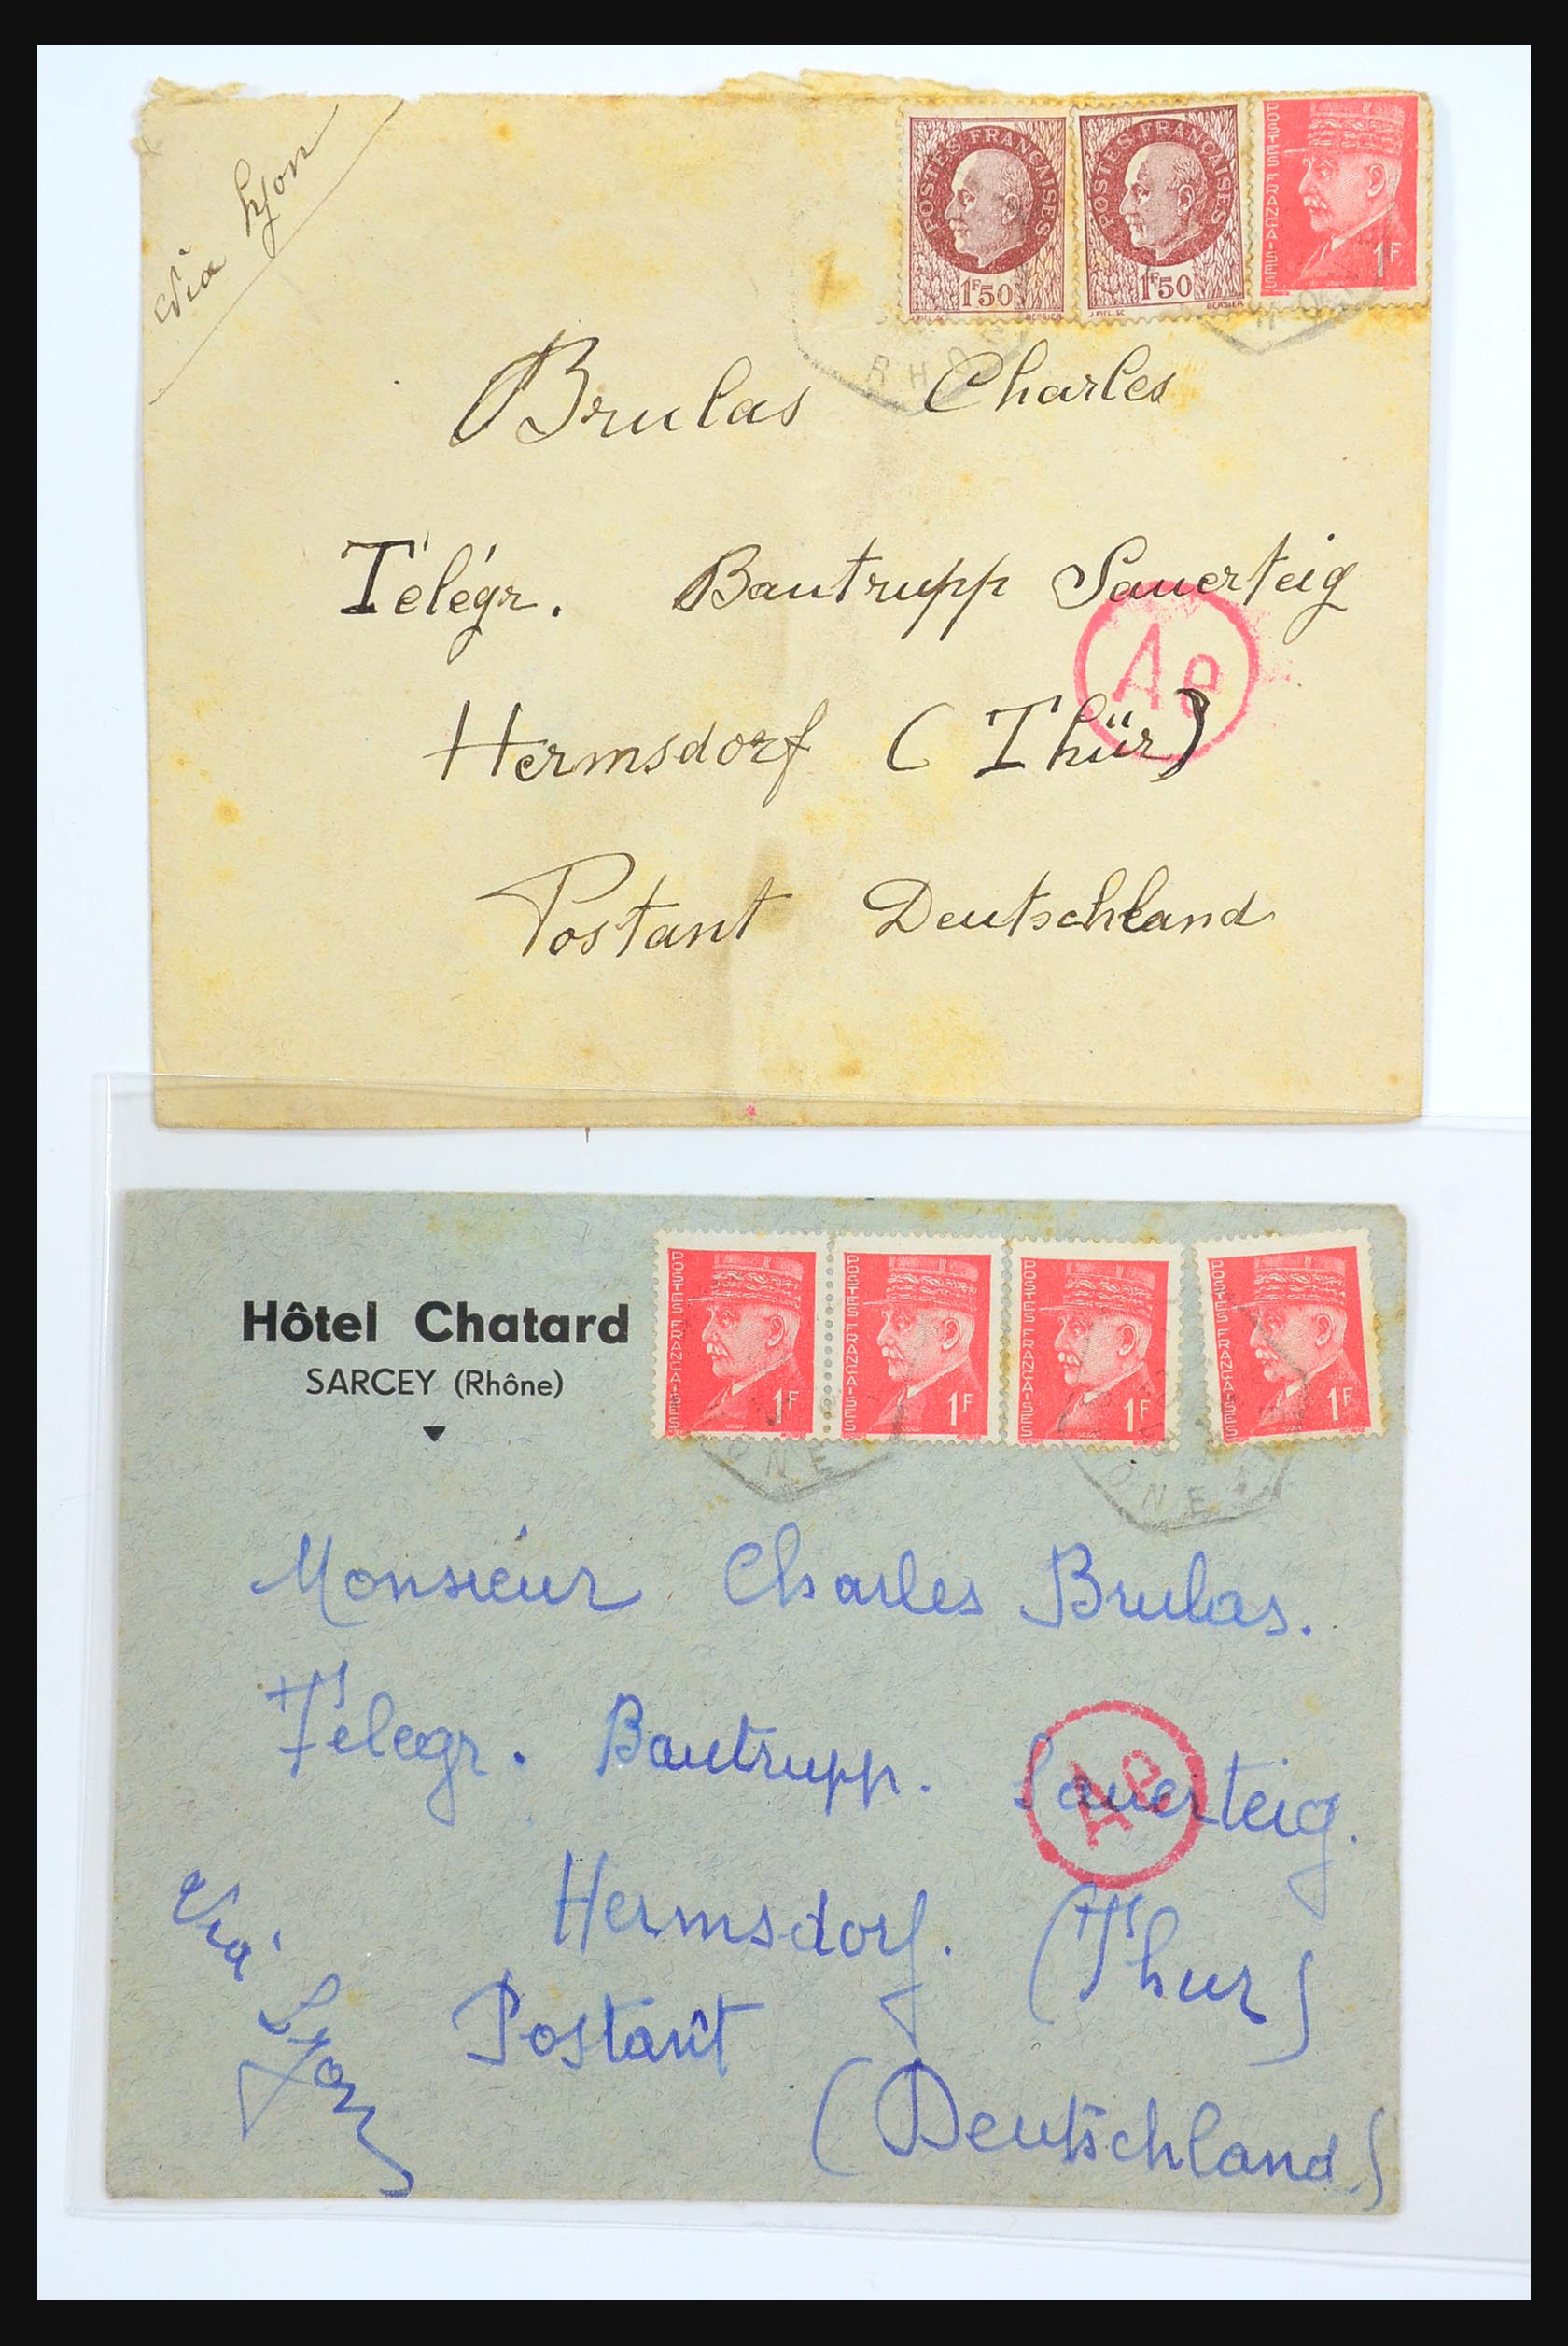 Via Lyon
POSTES FRANÇAISES
1F50
J.PIEL.SC BERSIER
POSTES FRANÇAISES
1F50
J.PIEL.SC BERSIER
POSTES FRANÇAISES
1F
RHO
Brulas Charles
Télégr. Bautrupp Sauerteig
Ae
Hermsdorf (Thür)
Postant Deutschland
Hôtel Chatard
SARCEY (Rhône)
POSTES FRANÇAISES
1F
POSTES FRANÇAISES
1F
POSTES FRANÇAISES
1F
POSTES FRANÇAISES
1F
ONE
ONE
Monsieur Charles Brulas.
Télegr. Bautrupp. Sauerteig.
Ae
Hermsdorf. (Thur)
Via Lyon
Postant
(Deutschland)